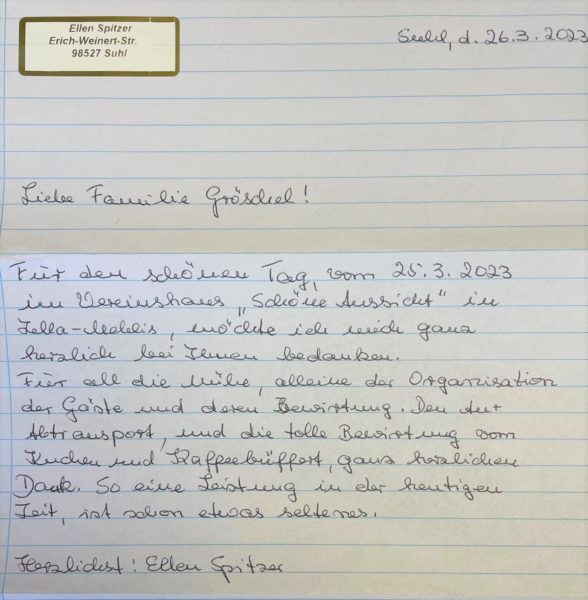 Ellen Spitzer
Erich-Weinert-Str.
98527 Suhl
Suhl, d. 26.3.2023
Liebe Familie Gröschel!
Für den schönen Tag, vom 25.3.2023
im Vereinshaus „Schöne Aussicht" in
Zella-Mehlis, möchte ich mich ganz
herzlich bei Ihnen bedanken.
Für all die Mühe, alleine der Organisation
der Gäste und deren Bewirtung. Den An-
Abtransport, und die tolle Bewirtung vom
Kuchen und Kaffeebüffett, ganz herzlichen
Dank. So eine Leistung in der heutigen
Zeit, ist schon etwas seltenes.
Herzlichst! Ellen Spitzer